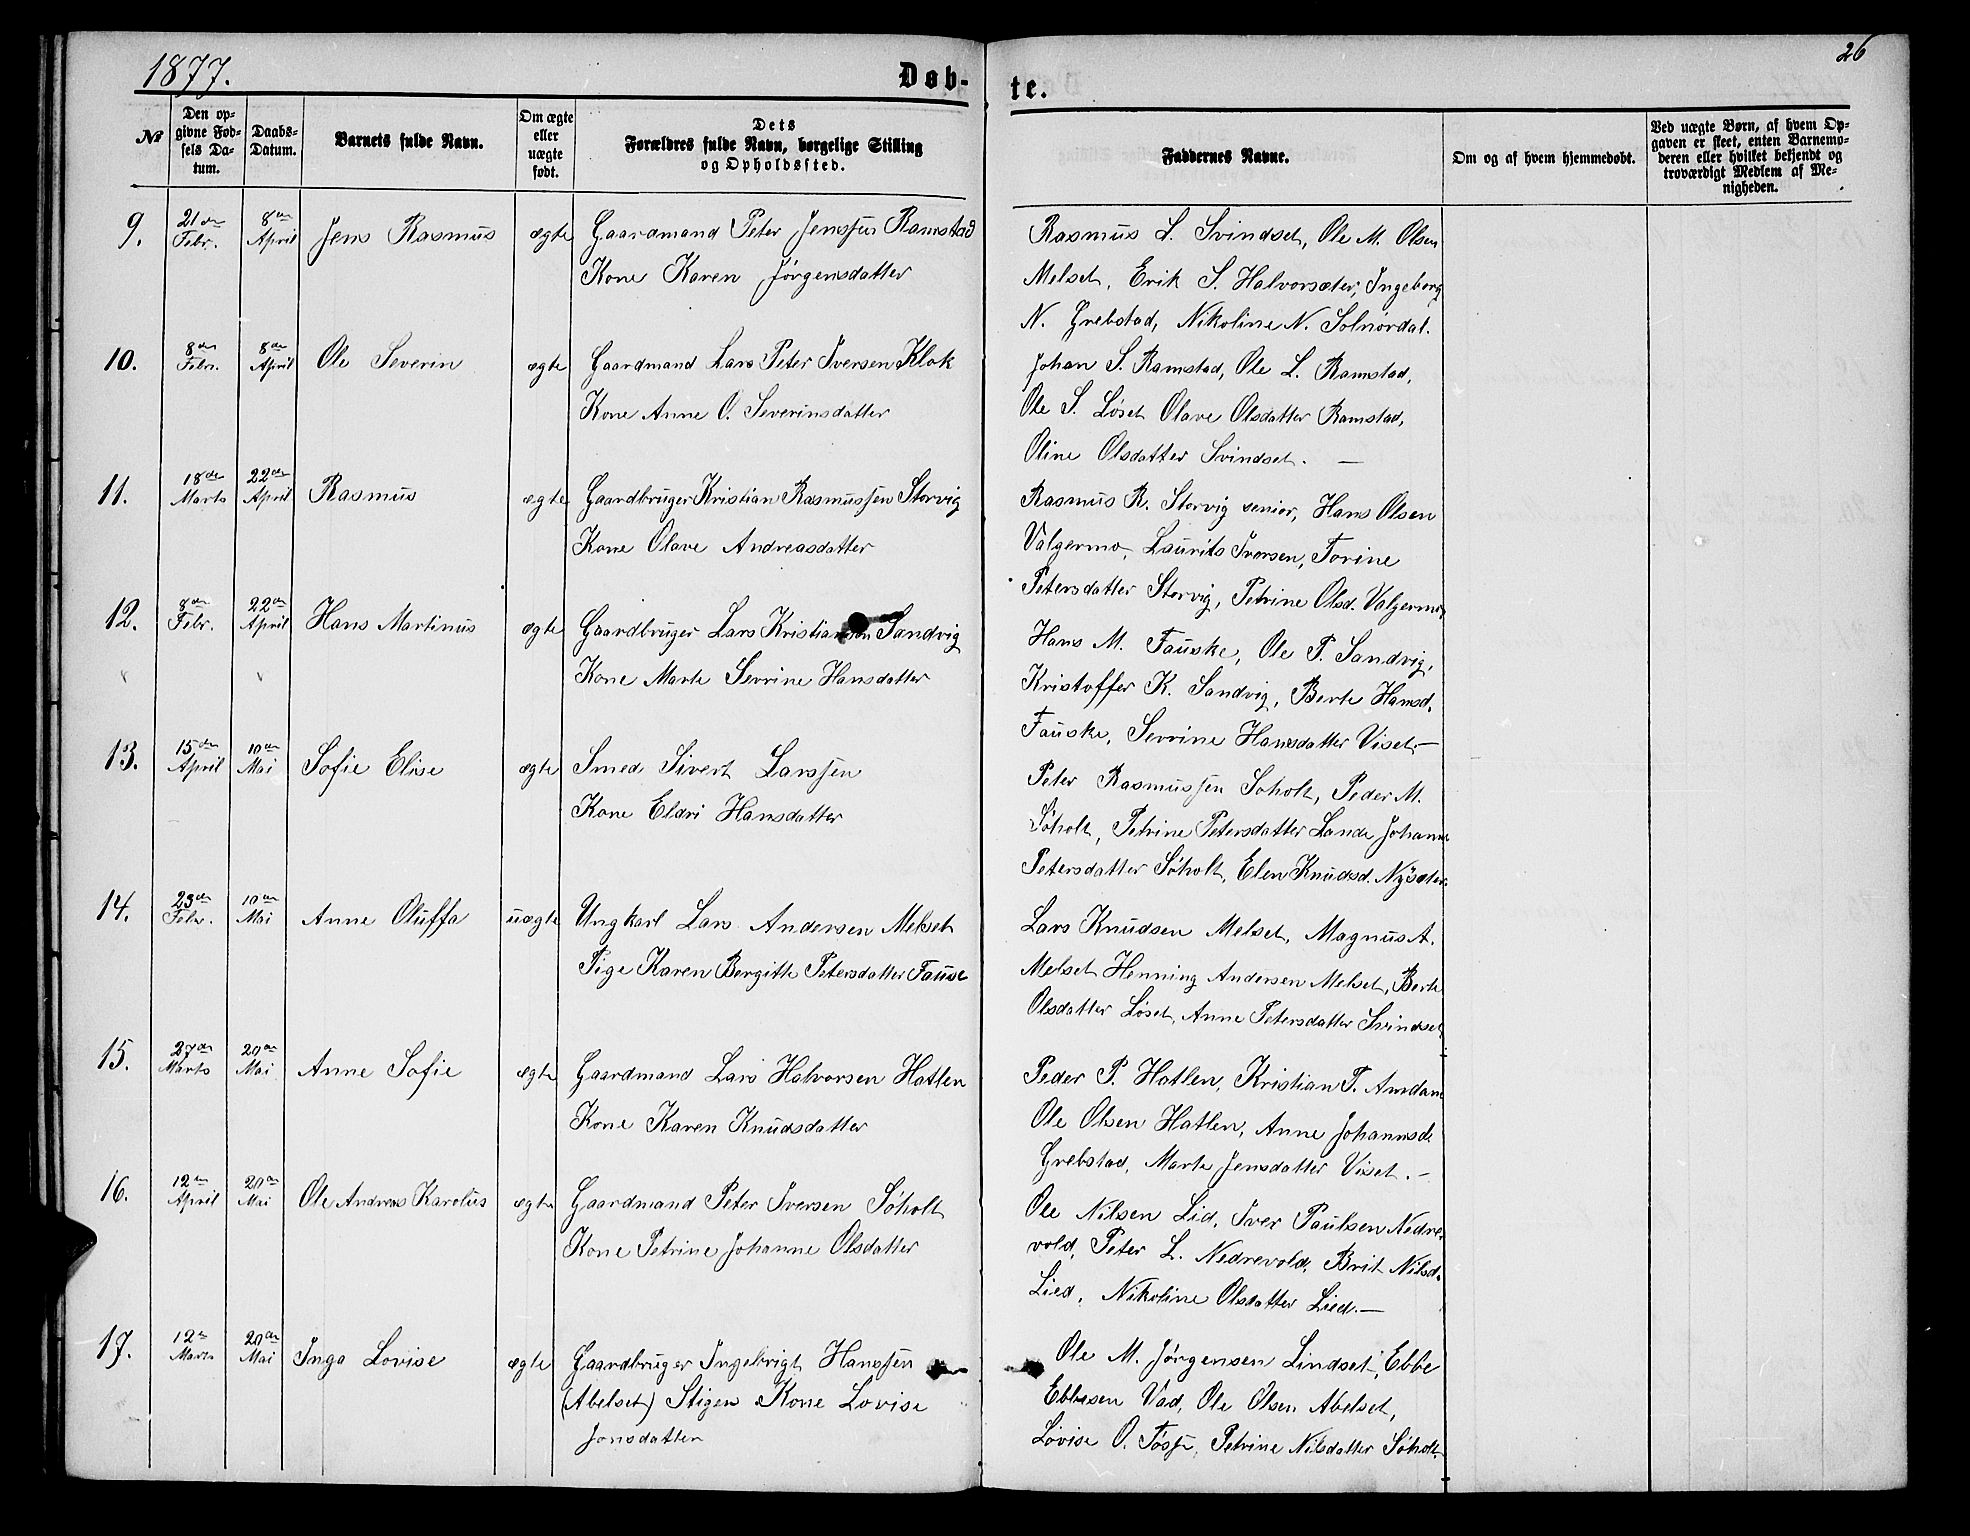 1877.
Døb-
te.
26
№
Den op-
givne Fød-
sels Da-
tum.
Daabs-
Datum.
Barnets fulde Navn.
Om ægte
eller
uægte
født.
Dets
Forældres fulde Navn, borgelige Stilling
og Opholdssted.
Faddernes Navne.
Om og af hvem hjemmedøbt.
Ved uægte Børn, af hvem Op-
gaven er skeet, enten Barnemo-
deren eller hvilket bekjendt og
troværdigt Medlem af Me-
nigheden.
9. 21de Febr. 8de April Jens Rasmus ægte Gaardmand Peter Jenssen Ramstad
Kone Karen Jørgensdatter
Rasmus L. Svindset, Ole M. Olsen
Melset, Erik S. Halvorsæter, Ingeborg
N. Grebstad, Nikoline N. Solnørdal.
10. 8de Febr. 8de April Ole Severin ægte Gaardmand Lars Peter Iversen Klok
Kone Anne O. Severinsdatter
Johan S. Ramstad, Ole L. Ramstad,
Ole S. Løset Olave Olsdatter Ramstad,
Oline Olsdatter Svindset. —
11. 18de Marts 22de April Rasmus ægte Gaardbruger Kristian Rasmussen Storvig
Kone Olave Andreasdatter
Rasmus R. Storvig senior, Hans Olsen
Valgermo, Laurits Iversen, Torine
Petersdatter Storvig, Petrine Olsd. Valgermo,
12. 8de Febr. 22de April Hans Martinus ægte Gaardbruger Lars Kristiansen Sandvig
Kone Marte Severine Hansdatter
Hans M. Fauske, Ole P. Sandvig,
Kristoffer K. Sandvig, Berte Hansd.
Fauske, Severine Hansdatter Viset. —
13. 15de April 10de Mai Sofie Elise ægte Smed Sivert Larssen
Kone Eldri Hansdatter
Peter Rasmussen Søholt, Peder M.
Søholt, Petrine Petersdatter Lande Johanne
Petersdatter Søholt, Elen Knudsd. Nysæter.
14. 23de Febr. 10de Mai Anne Oluffa uægte Ungkarl Lars Andersen Melset
Pige Karen Bergitte Petersdatter Fause
Lars Knudsen Melset, Magnus A.
Melset Henning Andersen Melset, Berte
Olsdatter Løset, Anne Petersdatter Svindset
15. 27de Marts 20de Mai Anne Sofie ægte Gaardmand Lars Halvorsen Hatlen
Kone Karen Knudsdatter
Peder P. Hatlen, Kristian T. Amdam
Ole Olsen Hatlen, Anne Johannsd.
Grebstad, Marte Jensdatter Viset. —
16. 12te April 20de Mai Ole Andreas Karolius ægte Gaardmand Peter Iversen Søholt
Kone Petrine Johanne Olsdatter
Ole Nilsen Lid, Iver Paulsen Nedre-
vold, Peter L. Nedrevold, Brit Nilsd.
Lied, Nikoline Olsdatter Lied. —
17. 12te Marts 20de Mai Inga Lovise ægte Gaardbruger Ingebrigt Hanssen
(Abelset) Stigen Kone Lovise
Jonsdatter
Ole M. Jørgensen Lindset, Ebbe
Ebbesen Vad, Ole Olsen Abelset,
Lovise O. Fosse, Petrine Nilsdatter Søholt.